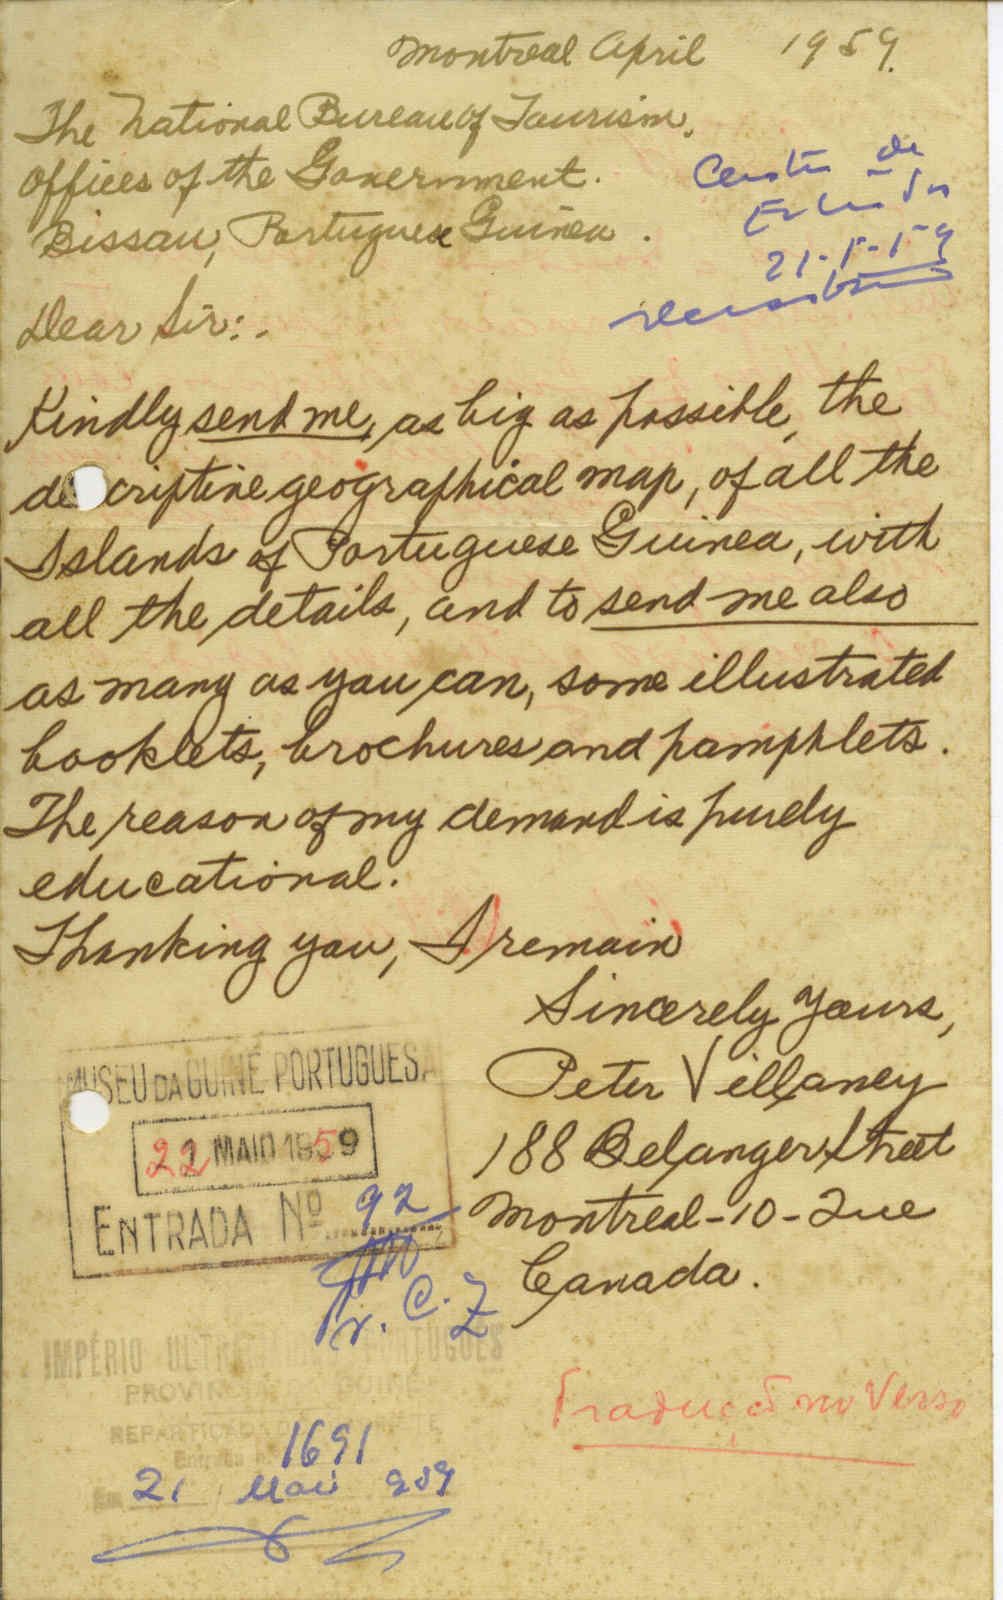 Montreal April 1959.
The National Bureau of Tourism.
Offices of the Government.
Bissau, Portuguese Guinea.
Centro de
Estudos
21-5-59
Dear Sir:.
Kindly send me, as big as possible, the
descriptive geographical map, of all the
Islands of Portuguese Guinea, with
all the details, and to send me also
as many as you can, some illustrated
booklets, brochures and pamphlets.
The reason of my demand is purely
educational.
Thanking you, I remain
Sincerely Yours,
Peter Villaney
188 Belanger Street
Montreal-10-Que
Canada.
MUSEU DA GUINÉ PORTUGUESA
22 MAIO 1959
ENTRADA Nº 92
IMPÉRIO ULTRAMARINO PORTUGUÊS
PROVÍNCIA DA GUINÉ
1691
Em 21 Maio 959
Tradução no Verso